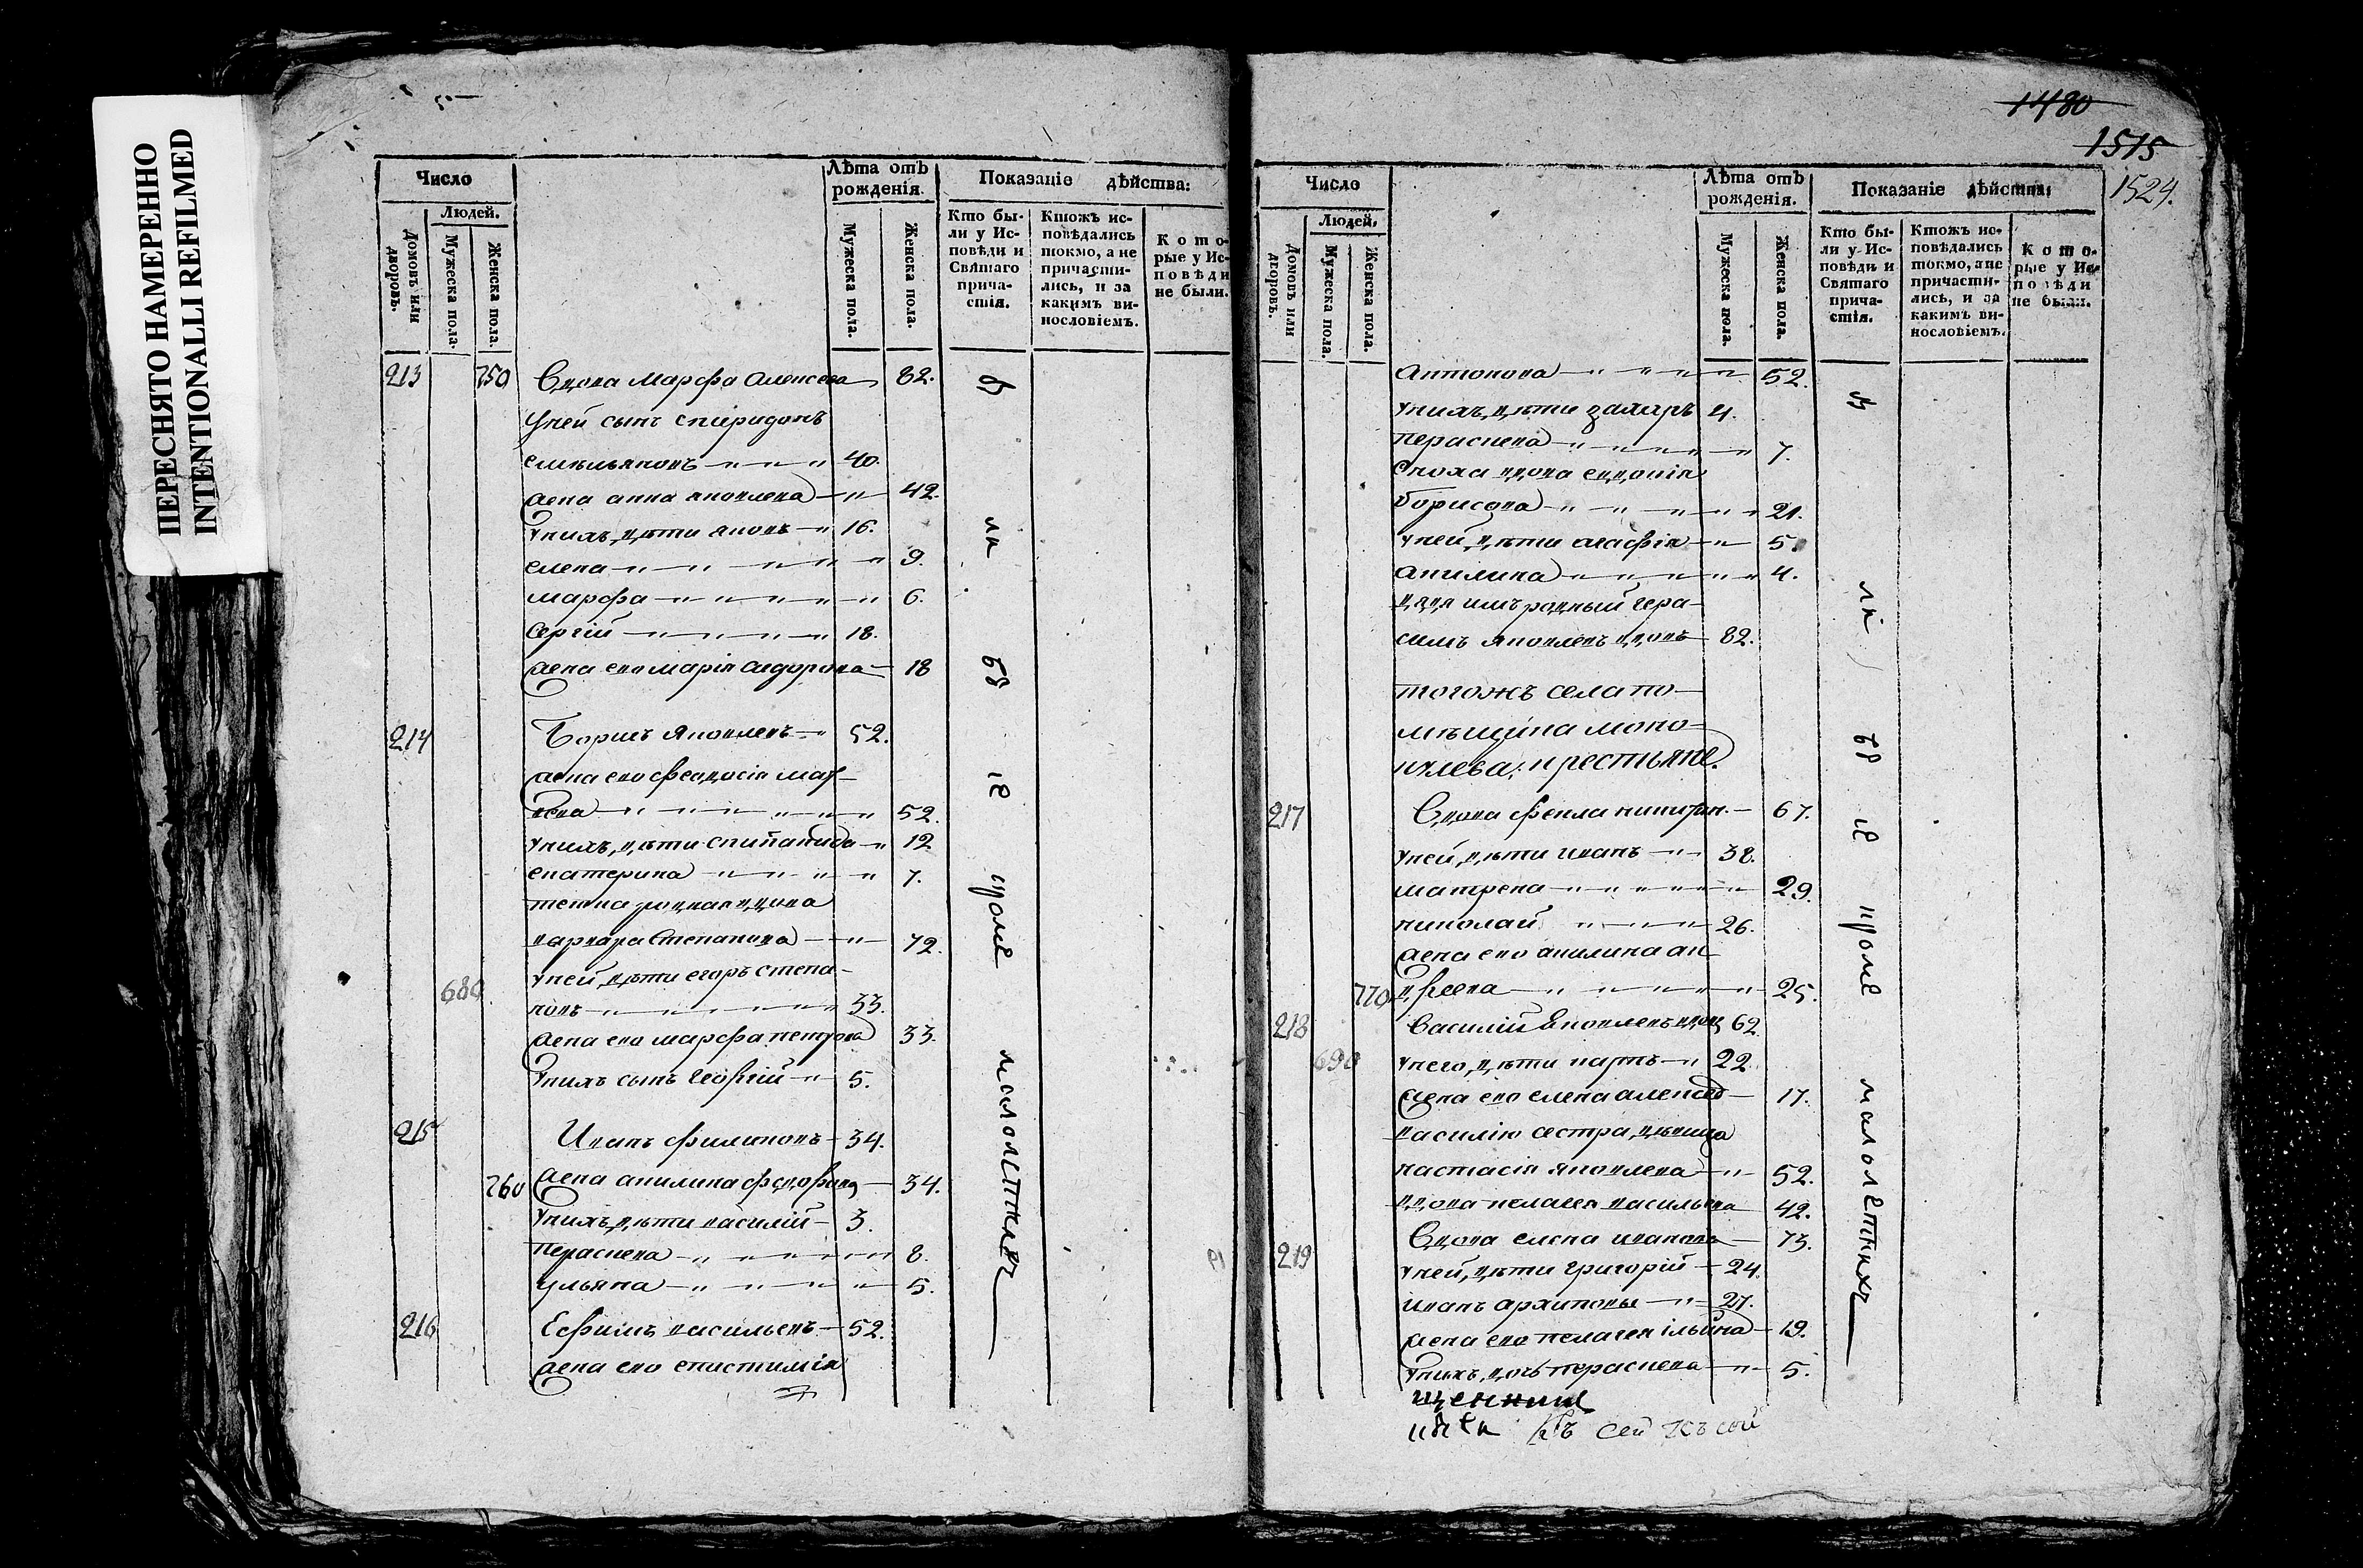 ПЕРЕСНЯТО НАМЕРЕННО
INTENTIONALLI REFILMED
Число
Людей.
Домовъ или дворовъ.
Мужеска пола.
Женска пола.
Лѣта отъ рожденія.
Мужеска пола.
Женска пола.
Показаніе дѣйства:
Кто бы-
ли у Ис-
повѣди и
Святаго
прича-
стія.
Ктожъ ис-
повѣдались
токмо, а не
причасти-
лись, и за
какимъ ви-
нословіемъ.
Кото-
рые у Ис-
повѣди
не были.
213 750 Вдова Марфа Алексева 82.
Уней сынъ спиридонъ
емельяновъ 40.
жена анна яковлева 42.
Унихъ дѣти яковъ 16.
елена 9.
марфа 6.
Сергій 18.
жена ево марія сидорова 18
214 Борисъ яковлевъ 52.
жена ево феодосія
52.
Унихъ дѣти 12
екатерина 7.
тетка родная вдова
варвара степанова 72.
Уней дѣти егоръ степа-
680 новъ 33.
жена ево марфа петрова 33.
Унихъ сынъ георгій 5.
215 Иванъ филиповъ 34.
760 жена акилина федорова 34.
Унихъ дѣти василій 3.
Пераскева 8.
ульяна 5.
216 Ефимъ васильевъ 52.
жена ево епистимія
всѣ кроме малолетнихъ
1480
1515
1524.
Число
Людей.
Домовъ или дворовъ.
Мужеска пола.
Женска пола.
Лѣта отъ рожденія.
Мужеска пола.
Женска пола.
Показаніе дѣйства:
Кто бы-
ли у Ис-
повѣди и
Святаго
прича-
стія.
Ктожъ ис-
повѣдались
токмо, а не
причасти-
лись, и за
какимъ ви-
нословіемъ.
Кото-
рые у Ис-
повѣди
не были.
антонова 52.
Унихъ дѣти захаръ 4.
Пераскева 7.
Сноха вдова евдокія
борисова 21.
Уней дѣти 5.
акилина 4.
дядя имъ родный гера-
симъ яковлевъ вдовъ 82.
тогожъ села по-
мѣщика
крестьяне.
217 Вдова фекла никитин. 67.
Уней дѣти иванъ 38.
матрена 29.
николай 26.
жена ево акилина ан-
770 дреева 25.
218 Василій яковлевъ вдов 62
690 Унего дѣти карпъ 22.
жена ево елена алексеев 17.
василію сестра девица
настасія яковлева 52.
вдова пелагея васильева 42.
219 Вдова елена иванова 73.
Уней дѣти григорій 24.
иванъ архиповы 27.
жена ево пелагея ільина 19.
Унихъ дочь пераскева 5.
кроме малолетнихъ